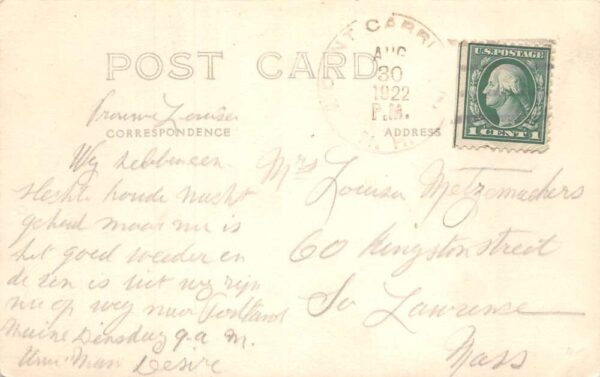 POST CARD
MOUNT CARRI
AUG
30
1922
P.M.
U.S. POSTAGE
1 CENT 1
CORRESPONDENCE
ADDRESS
Louise
Wy hebben een
slechte koude nacht
gehad maar nu is
het goed weeder en
de zen is uit wy zijn
nu op weg naar Portland
Maine Dinsdag 9 a. m.
Desire
Mrs Louisa Metzemackers
60 Kingston street
So Lawrence
Mass